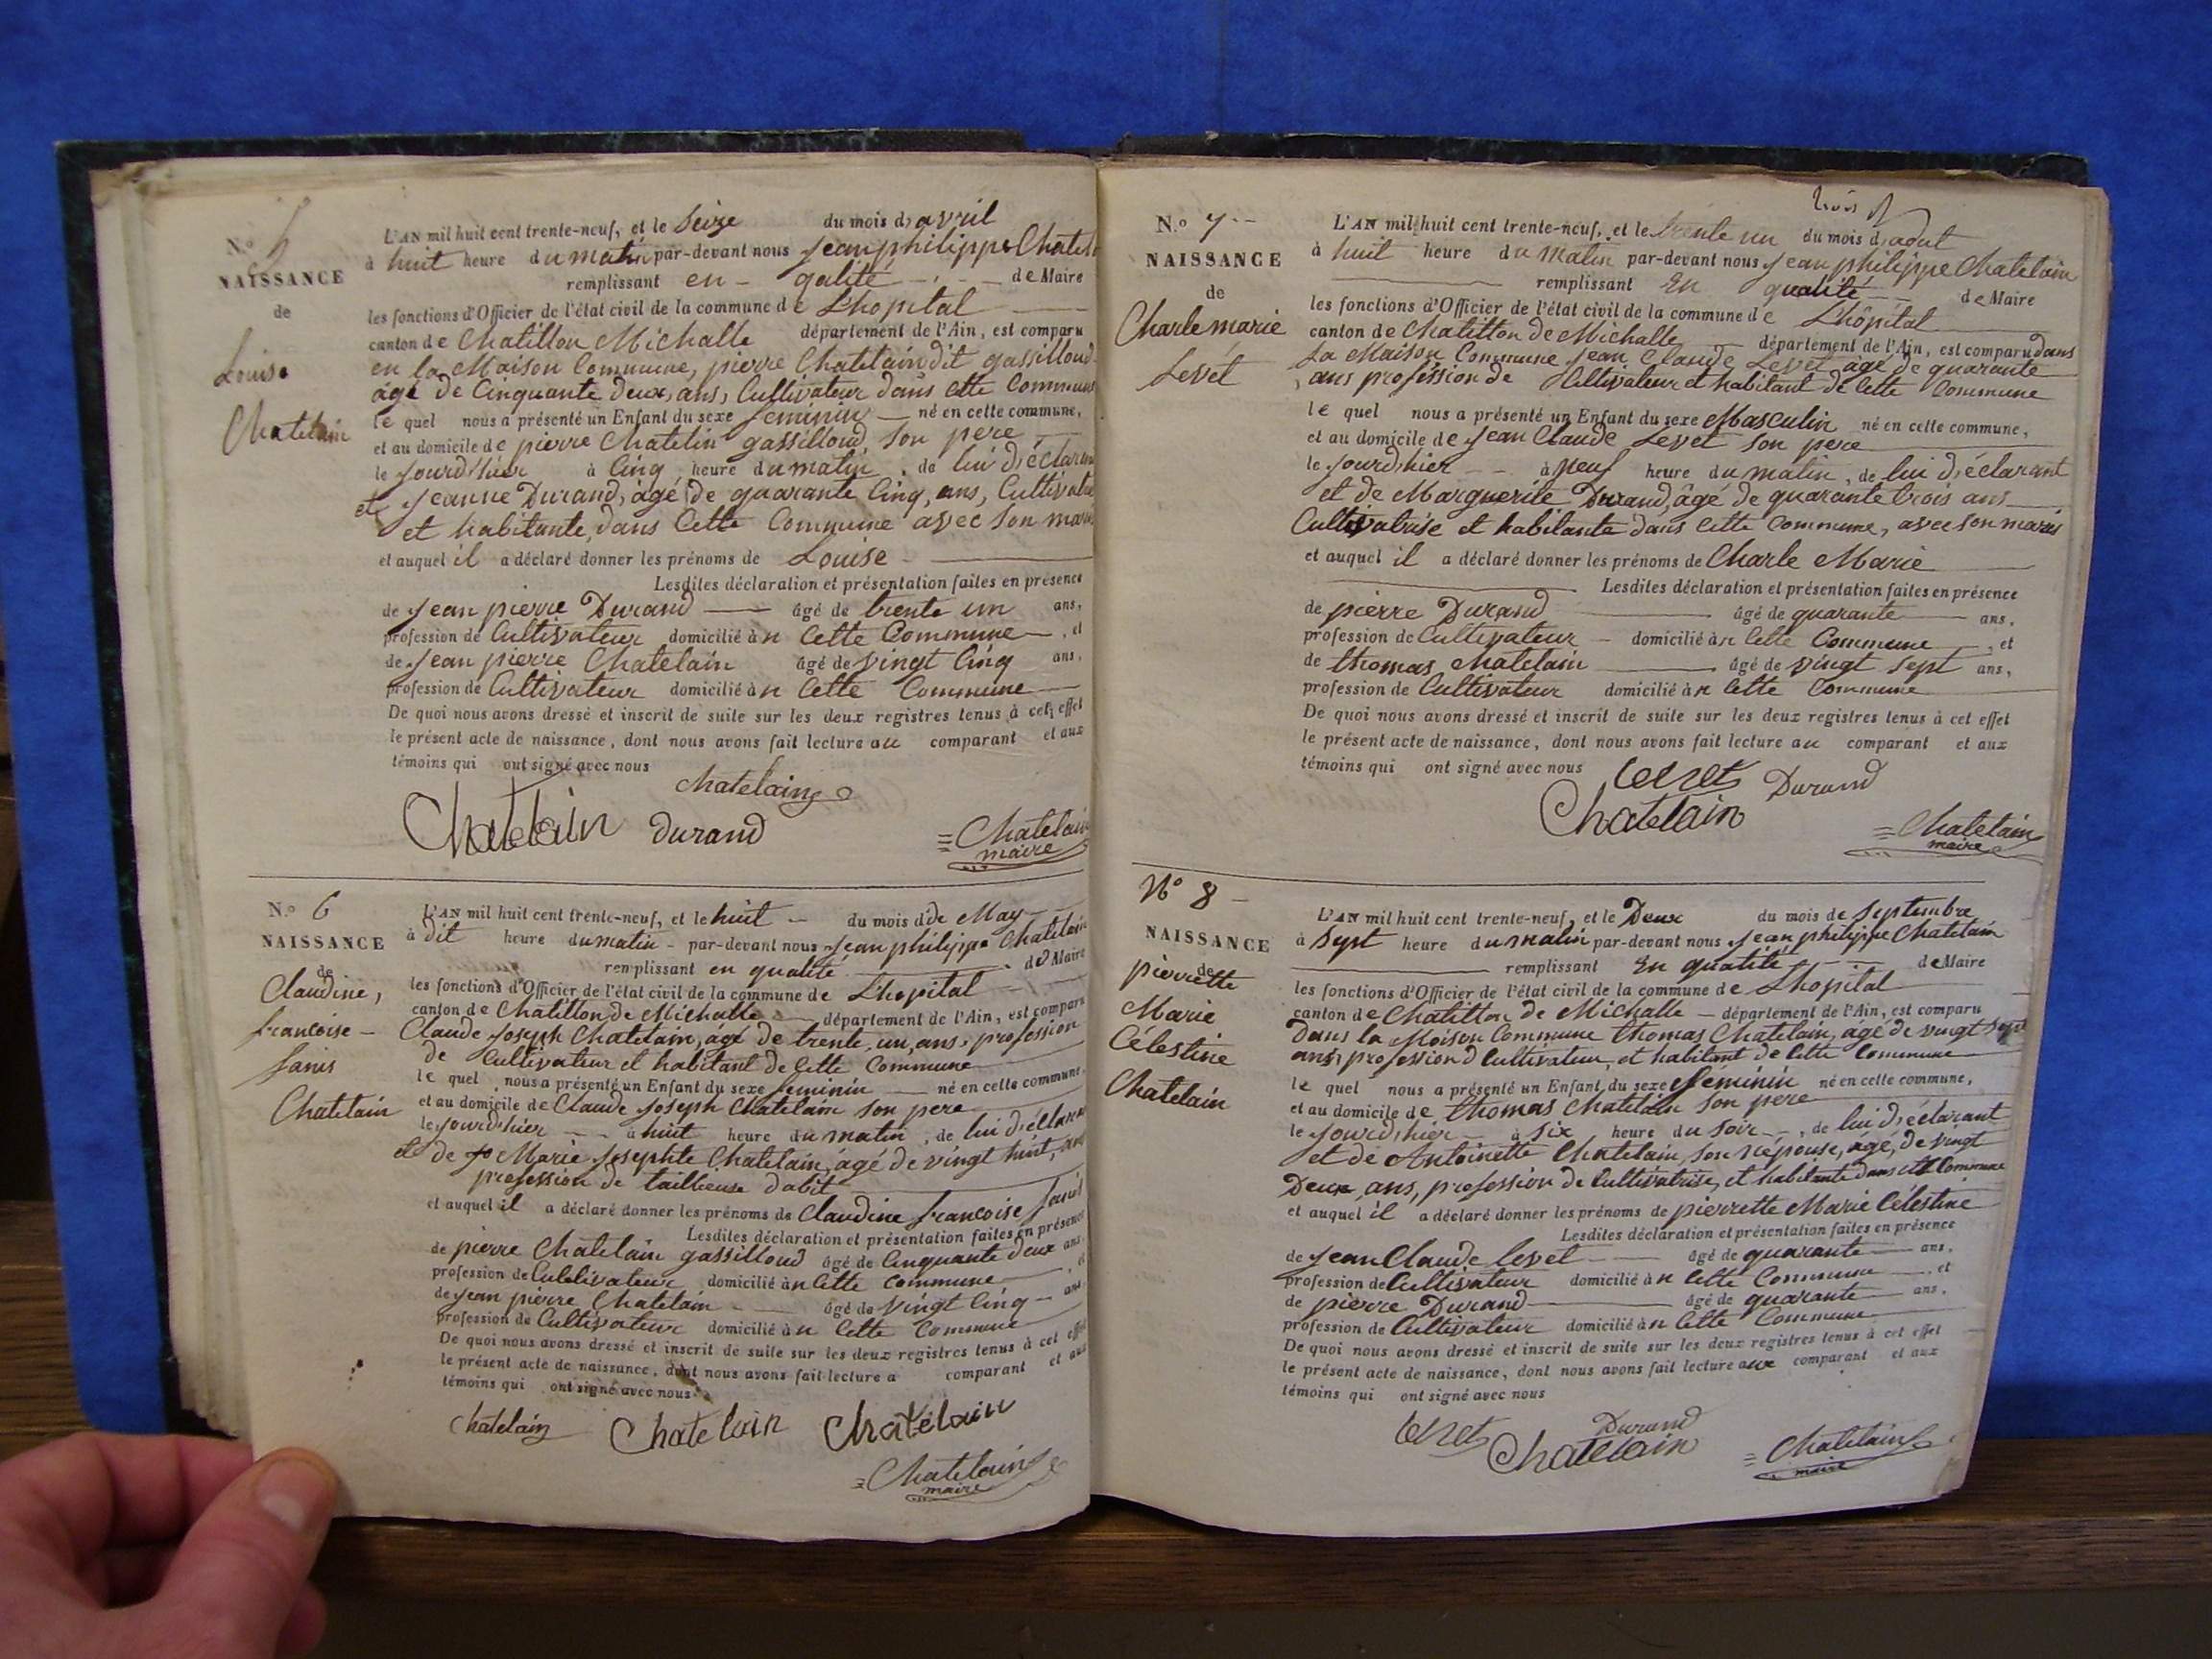 N.º 5
NAISSANCE
de
Louise
Chatelain
L'AN mil huit cent trente-neuf, et le Seize du mois d'avril
à huit heure du matin par-devant nous Jean philippe Chatel
remplissant en qalité de Maire
les fonctions d'Officier de l'état civil de la commune de L'hopital
canton de Chatillon Michalle département de l'Ain, est comparu
en la Maison Commune, pierre Chatelain dit gassilloud
âgé de Cinquante deux, ans, Cultivateur dans cette Commune
le quel nous a présenté un Enfant du sexe feminin né en cette commune,
et au domicile de pierre Chatelin gassilloud, son pere
le Jourd'hier à Cinq heure du matin, de lui déclarant
et Jeanne Durand, âgé de quarante Cinq, ans, Cultivatri
et habitante dans Cette Commune avec son mari
et auquel il a déclaré donner les prénoms de Louise
Lesdites déclaration et présentation faites en présence
de Jean pierre Durand âgé de trente un ans,
profession de Cultivateur domicilié àn Cette Commune, et
de Jean pierre Chatelain âgé de vingt Cinq ans,
profession de Cultivateur domicilié àn Cette Commune
De quoi nous avons dressé et inscrit de suite sur les deux registres tenus à cet effet
le présent acte de naissance, dont nous avons fait lecture au comparant et aux
témoins qui ont signé avec nous
Chatelain
Chatelain Durand
Chatelain
maire
N.º 6
NAISSANCE
de
Claudine,
francoise
fanis
Chatelain
L'AN mil huit cent trente-neuf, et le huit du mois d'de May
à dit heure du matin par-devant nous Jean philippe Chatelain
remplissant en qualité de Maire
les fonctions d'Officier de l'état civil de la commune de L'hopital
canton de Chatillon de Michalle département de l'Ain, est comparu
Claude Joseph Chatelain, âgé de trente, un, ans, profession
de Cultivateur et habitant de Cette Commune
le quel nous a présenté un Enfant du sexe feminin né en cette commune,
et au domicile de Claude Joseph Chatelain son pere
le Jourd'hier à huit heure du matin, de lui déclarant
et de Marie Josephte Chatelain, âgé de vingt huit, ans
profession de tailleuse dabit
et auquel il a déclaré donner les prénoms de Claudine francoise fanis
Lesdites déclaration et présentation faites en présence
de pierre Chatelain gassilloud âgé de Cinquante deux ans,
profession de Cultivateur domicilié àn Cette Commune, et
de Jean pierre Chatelain âgé de vingt Cinq ans,
profession de Cultivateur domicilié àn Cette Commune
De quoi nous avons dressé et inscrit de suite sur les deux registres tenus à cet effet
le présent acte de naissance, dont nous avons fait lecture a comparant et aux
témoins qui ont signé avec nous
Chatelain Chatelain Chatélain
Chatelain
maire
N.º 7
NAISSANCE
de
Charle marie
Levet
trois
L'AN mil huit cent trente-neuf, et le trente un du mois d'aout
à huit heure du matin par-devant nous Jean philippe Chatelain
remplissant En qualité de Maire
les fonctions d'Officier de l'état civil de la commune de L'hôpital
canton de Chatillon de Michalle département de l'Ain, est comparu dans
La Maison Commune Jean Claude Levet âgé de quarante
ans profession de Cultivateur et habitant de Cette Commune
le quel nous a présenté un Enfant du sexe Masculin né en cette commune,
et au domicile de Jean Claude Levet son pere
le Jourd'hier à neuf heure du matin, de lui déclarant
et de Marguerite Durand, âgé de quarante trois ans
Cultivatrise et habitante dans Cette Commune, avec son maris
et auquel il a déclaré donner les prénoms de Charle Marie
Lesdites déclaration et présentation faites en présence
de pierre Durand âgé de quarante ans,
profession de Cultivateur domicilié àn Cette Commune, et
de thomas Chatelain âgé de vingt sept ans,
profession de Cultivateur domicilié àn Cette Commune
De quoi nous avons dressé et inscrit de suite sur les deux registres tenus à cet effet
le présent acte de naissance, dont nous avons fait lecture au comparant et aux
témoins qui ont signé avec nous
Levet Durand
Chatelain
Chatelain
maire
Nº 8
NAISSANCE
de
pierrette
Marie
Célestine
Chatelain
L'AN mil huit cent trente-neuf, et le Deux du mois de Septembre
à Sept heure du matin par-devant nous Jean philippe Chatelain
remplissant En qualité de Maire
les fonctions d'Officier de l'état civil de la commune de L'hopital
canton de Chatillon de Michalle département de l'Ain, est comparu
Dans la Maison Commune thomas Chatelain, âgé de vingt Sept
ans, profession d Cultivateur, et habitant de Cette Commune
le quel nous a présenté un Enfant du sexe féminin né en cette commune,
et au domicile de thomas Chatelain son pere
le Jourd'hier à Six heure du soir, de lui déclarant
et de Antoinette Chatelain, son népouse, âgé, de vingt
Deux, ans, profession de Cultivatrise, et habitante dans cette Commune
et auquel il a déclaré donner les prénoms de pierrette Marie Célestine
Lesdites déclaration et présentation faites en présence
de Jean Claude levet âgé de quarante ans,
profession de Cultivateur domicilié àn Cette Commune, et
de pierre Durand âgé de quarante ans,
profession de Cultivateur domicilié àn Cette Commune
De quoi nous avons dressé et inscrit de suite sur les deux registres tenus à cet effet
le présent acte de naissance, dont nous avons fait lecture aux comparant et aux
témoins qui ont signé avec nous
Levet Durand
Chatelain
Chatelain
maire